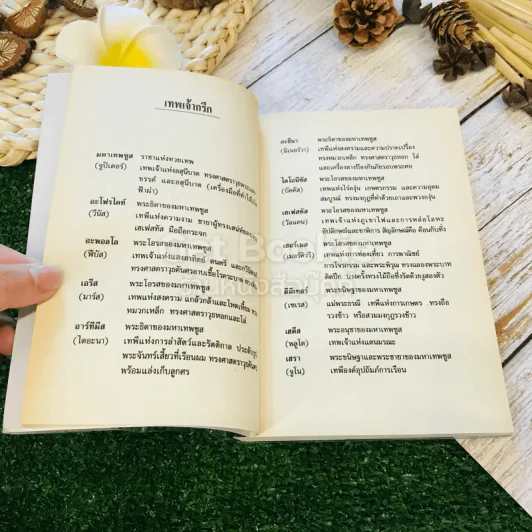 เทพเจ้ากรีก
มหาเทพซูส ราชาแห่งทวยเทพ
(จูปิเตอร์) เทพเจ้าแห่งอสุนีบาต ทรงศาสตราวุธ
ขรรค์ และอสุนีบาต (เครื่องมือที่ทำให้เกิด
ฟ้าผ่า)
อะโฟรไดท์ พระธิดาของมหาเทพซูส
(วีนัส) เทพีแห่งความงาม ชายาผู้ทรงเสน่ห์ของ
เฮเฟสทัส มือถือกระจก
อะพอลโล พระโอรสของมหาเทพซูส
(ฟีบัส) เทพเจ้าแห่งแสงอาทิตย์ ดนตรี และกวีนิพนธ์
ทรงศาสตราวุธคันศรอาบเชื้อโรค
เอริส พระโอรสของมหาเทพซูส
(มาร์ส) เทพแห่งสงคราม แกล้วกล้าและโหดเหี้ยม ทรง
หมวกเหล็ก ทรงศาสตราวุธหอกและโล่
อาร์ทีมีส พระธิดาของมหาเทพซูส
(ไดอะนา) เทพีแห่งการล่าสัตว์และรัตติกาล ประดับรูป
พระจันทร์เสี้ยวที่เรือนผม ทรงศาสตราวุธคันศร
พร้อมแล่งเก็บลูกศร
อะธีนา พระธิดาของมหาเทพซูส
(มิเนอร์วา) เทพีแห่งสงครามและความปราดเปรื่อง
ทรงหมวกเหล็ก ทรงศาสตราวุธ หอก โล่
และเครื่องลางป้องกันภัยรอบพระศอ
ไดโอนิซัส พระโอรสของมหาเทพซูส
(บัคคัส) เทพแห่งไร่องุ่น เกษตรกรรม และความอุดม
สมบูรณ์ ทรงมงกุฎที่ทำด้วยเถาและพวงองุ่น
เฮเฟสทัส พระโอรสของมหาเทพซูส
(วัลแคน) เทพเจ้าแห่งภูเขาไฟและการหล่อโลหะ
อัปลักษณ์และขาพิการ สัญลักษณ์คือ ค้อนกับทั่ง
เฮอร์เมส พระโอรสของมหาเทพซูส
(เมอร์คิวรี) เทพแห่งการท่องเที่ยว การพาณิชย์
การโจรกรรม และพระพิรุณ ทรงฉลองพระบาท
ติดปีก บางครั้งทรงไม้ถือซึ่งรัดด้วยงูสองตัว
ดีมิเทอร์ พระขนิษฐาของมหาเทพซูส
(เซเรส) แม่พระธรณี เทพีแห่งการเกษตร ทรงถือ
รวงข้าว หรือสวมมงกุฎรวงข้าว
เฮดีส พระอนุชาของมหาเทพซูส
(พลูโต) เทพเจ้าแห่งแดนมรณะ
เฮรา พระขนิษฐาและพระชายาของมหาเทพซูส
(จูโน) เทพีองค์อุปถัมภ์การเรือน